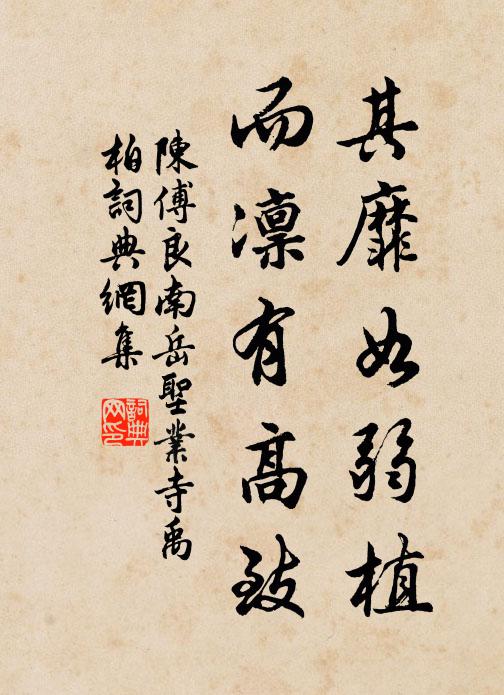 其靡如弱植
而凛有高致
陳傅良南岳聖業寺禹
柏詞典網集
詞典
网印